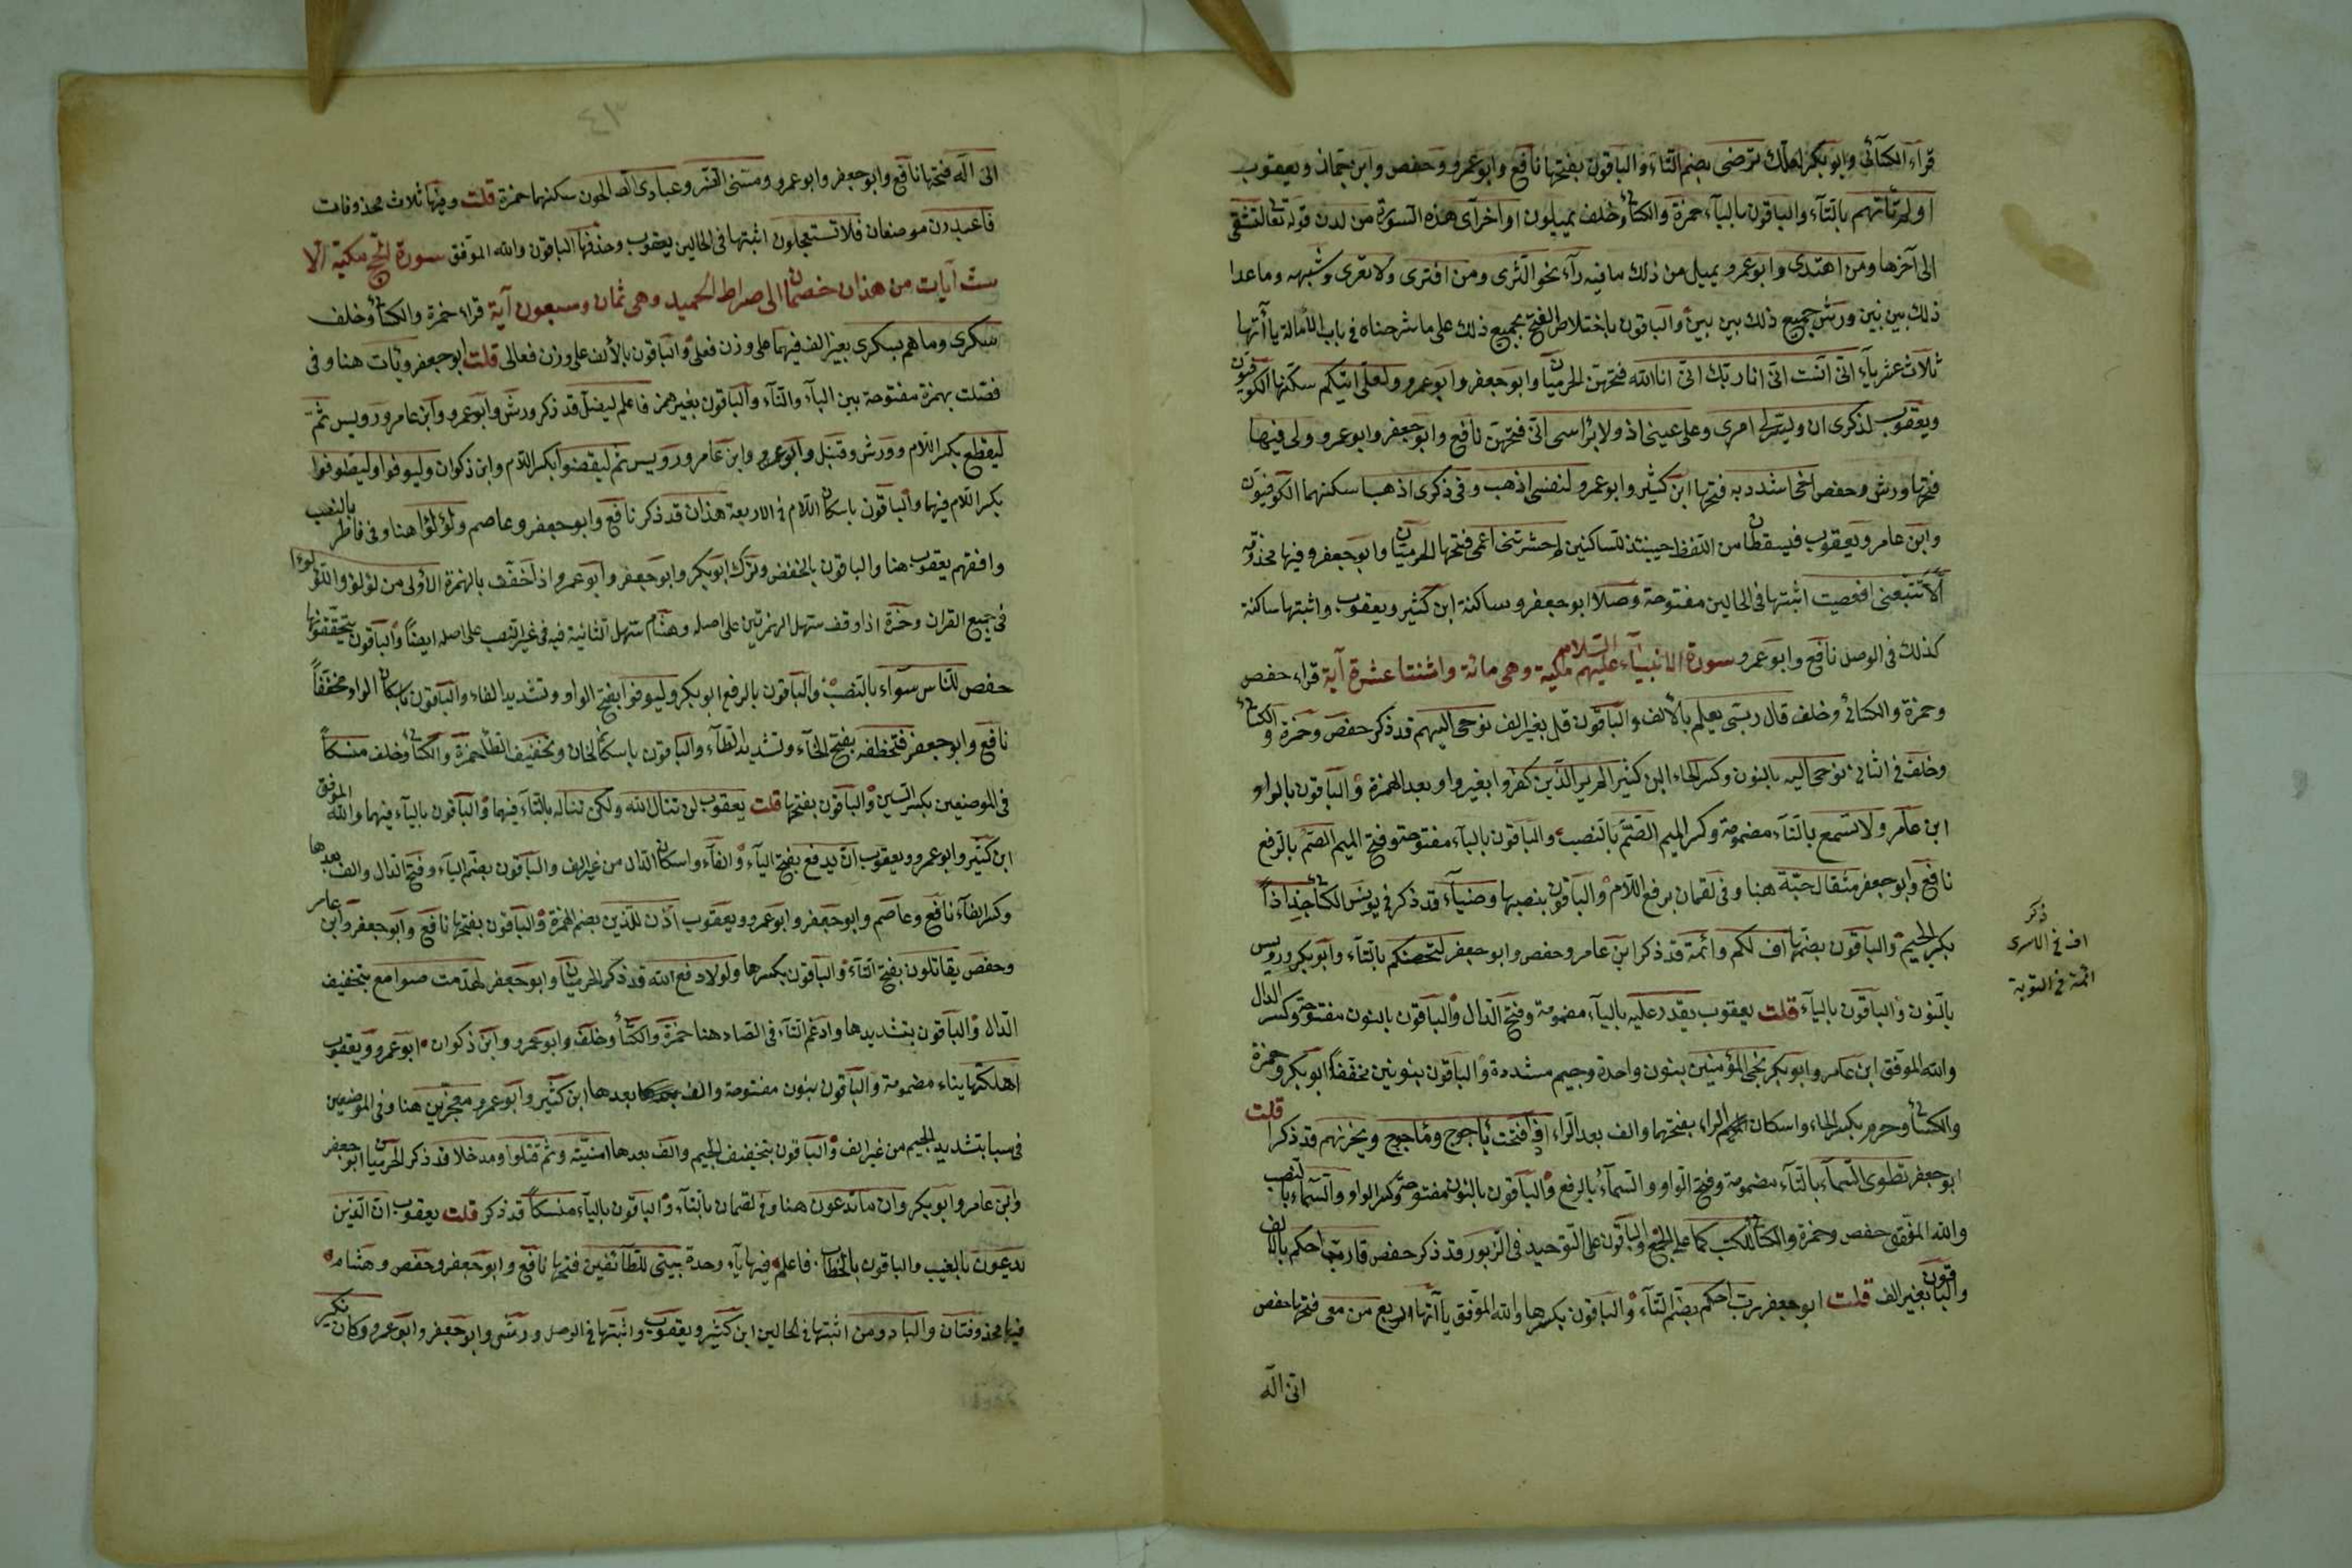 قراء الكسائى وابوبكر لعلك ترضى بضم التاء والباقون بفتحها نافع وابوعمرو وحفص وابن جماز ويعقوب
اولم تأتهم بالتاء والباقون بالياء حمزة والكسائى وخلف يميلون اواخر آى هذه السورة من لدن قوله تعالى لتشقى
الى آخرها ومن اهتدى وابوعمرو يميل من ذلك ما فيه راء نحو الثرى ومن افترى ولا تعرى وشبهه وما عدا
ذلك بين بين وورش جميع ذلك بين بين والباقون باخلاص الفتح بجميع ذلك على ما شرحناه فى باب الامالة ياآتها
ثلاث عشر ياء انى آنست انى انا ربك اننى انا الله فتحهن الحرميان وابوجعفر وابوعمرو ولعلى اتيكم سكنها الكوفيون
ويعقوب لذكرى ان ويسرلى امرى وعلى عينى اذ ولا برأسى انى فتحهن نافع وابوجعفر وابوعمرو ولى فيها
فتحها ورش وحفص اخى اشدد به فتحها ابن كثير وابوعمرو لنفسى اذهب وفى ذكرى اذهبا سكنهما الكوفيون
وابن عامر ويعقوب فيسقطان من اللفظ حينئذ للساكنين لم حشرتنى اعمى فتحها الحرميان وابوجعفر وفيها محذوفه
ألا تتبعنى افعصيت اثبتها فى الحالين مفتوحة وصلا ابوجعفر وساكنة ابن كثير ويعقوب واثبتها ساكنة
كذلك فى الوصل نافع وابوعمرو سورة الانبياء عليهم السلام مكية وهى مائة واثنتا عشرة آية قراء حفص
وحمزة والكسائى وخلف قال ربى يعلم بالالف والباقون قل بغير الف نوحى اليهم قد ذكر حفص وحمزة والكسائى
وخلف فى الثانى نوحى اليه بالنون وكسر الحاء ابن كثير الم ير الذين كفروا بغير واو بعد الهمزة والباقون بالواو
ابن عامر ولا تسمع بالتاء مضمومة وكسر الميم الصم بالنصب والباقون بالياء مفتوحة وفتح الميم الصم بالرفع
نافع وابوجعفر مثقال حبة هنا وفى لقمان برفع اللام والباقون بنصبها وضياء قد ذكر فى يونس الكسائى جذاذا
بكسر الجيم والباقون بضمها اف لكم وائمة قد ذكر ابن عامر وحفص وابوجعفر لتحصنكم بالتاء وابوبكر ورويس
بالنون والباقون بالياء قلت يعقوب يقدر عليه بالياء مضمومة وفتح الدال والباقون بالنون مفتوحة وكسر الدال
والله الموفق ابن عامر وابوبكر نجى المؤمنين بنون واحدة وجيم مشددة والباقون بنونين مخففا ابوبكر وحمزة
والكسائى وحرم بكسر الحاء واسكان الراء بفتحهما والف بعد الراء اذا فتحت يأجوج ومأجوج ويحزنهم قد ذكرا قلت
ابوجعفر تطوى السماء بالتاء مضمومة وفتح الواو والسماء بالرفع والباقون بالنون مفتوحة وكسر الواو والسماء بالنصب
والله الموفق حفص وحمزة والكسائى للكتب كما على الجمع والباقون على التوحيد فى الزبور قد ذكر حفص قال رب احكم بالالف
والباقون بغير الف قلت ابوجعفر رب احكم بضم التاء والباقون بكسرها والله الموفق ياآتها اربع من معى فتحها حفص
انى اله
ذكر
اف فى الاسرى
ائمة فى التوبة
انى اله فتحها نافع وابوجعفر وابوعمرو ومسنى الضر وعبادى الصالحون سكنهما حمزة قلت وفيها ثلاث محذوفات
فاعبدون موضعان فلا تستعجلون اثبتها فى الحالين يعقوب وحذفها الباقون والله الموفق سورة الحج مكية الا
ست آيات من هذان خصمان الى صراط الحميد وهى ثمان وسبعون آية قراء حمزة والكسائى وخلف
سكرى وما هم بسكرى بغير الف فيهما على وزن فعلى والباقون بالالف على وزن فعالى قلت ابوجعفر وربأت هنا وفى
فصلت بهمزة مفتوحة بين الباء والتاء والباقون بغير همز فاعلم ليضل قد ذكر ورش وابوعمرو وابن عامر ورويس ثم
ليقطع بكسر اللام وورش وقنبل وابوعمرو وابن عامر ورويس ثم ليقضوا بكسر اللام وابن ذكوان وليوفوا وليطوفوا
بكسر اللام فيهما والباقون باسكان اللام فى الاربعة هذان قد ذكر نافع وابوجعفر وعاصم ولؤلؤا هنا وفى فاطر بالنصب
وافقهم يعقوب هنا والباقون بالخفض وترك ابوبكر وابوجعفر وابوعمرو اذا خفف بالهمزة الاولى من لؤلؤ واللؤلؤ
فى جميع القران وحمزة اذا وقف سهل الهمزتين على اصله وهشام سهل الثانية فيه فى غير النصب على اصله ايضا والباقون يحققونها
حفص للناس سواء بالنصب والباقون بالرفع ابوبكر وليوفوا بفتح الواو وتشديد الفاء والباقون باسكان الواو مخففا
نافع وابوجعفر فتخطفه بفتح الخاء وتشديد الطاء والباقون باسكان الخاء وتخفيف الطاء حمزة والكسائى وخلف منسكا
فى الموضعين بكسر السين والباقون بفتحها قلت يعقوب لن تنال الله ولكن تناله بالتاء فيهما والباقون بالياء فيهما والله الموفق
ابن كثير وابوعمرو ويعقوب ان يدفع بفتح الياء والفاء واسكان الدال من غير الف والباقون بضم الياء وفتح الدال والف بعدها
وكسر الفاء نافع وعاصم وابوجعفر وابوعمرو ويعقوب اذن للذين بضم الهمزة والباقون بفتحها نافع وابوجعفر وابن عامر
وحفص يقاتلون بفتح التاء والباقون بكسرها ولولا دفع الله قد ذكر الحرميان وابوجعفر لهدمت صوامع بتخفيف
الدال والباقون بتشديدها وادغم التاء فى الصاد هنا حمزة والكسائى وخلف وابوعمرو وابن ذكوان ابوعمرو ويعقوب
اهلكتها بتاء مضمومة والباقون بنون مفتوحة والف بعدها ابن كثير وابوعمرو معجزين هنا وفى الموضعين
فى سبا بتشديد الجيم من غير الف والباقون بتخفيف الجيم والف بعدها امنيته وثم قتلوا ومدخلا قد ذكر الحرميان ابوجعفر
وابن عامر وابوبكر وان ما تدعون هنا وفى لقمان بالتاء والباقون بالياء منسكا قد ذكر قلت يعقوب ان الذين
يدعون بالغيب والباقون بالخطاب فاعلم فيها ياء وحدة بيتى للطائفين فتحها نافع وابوجعفر وحفص وهشام
فيها محذوفتان والباد ومن اثبتها فى الحالين ابن كثير ويعقوب واثبتها فى الوصل ورش وابوجعفر وابوعمرو وكان نكير